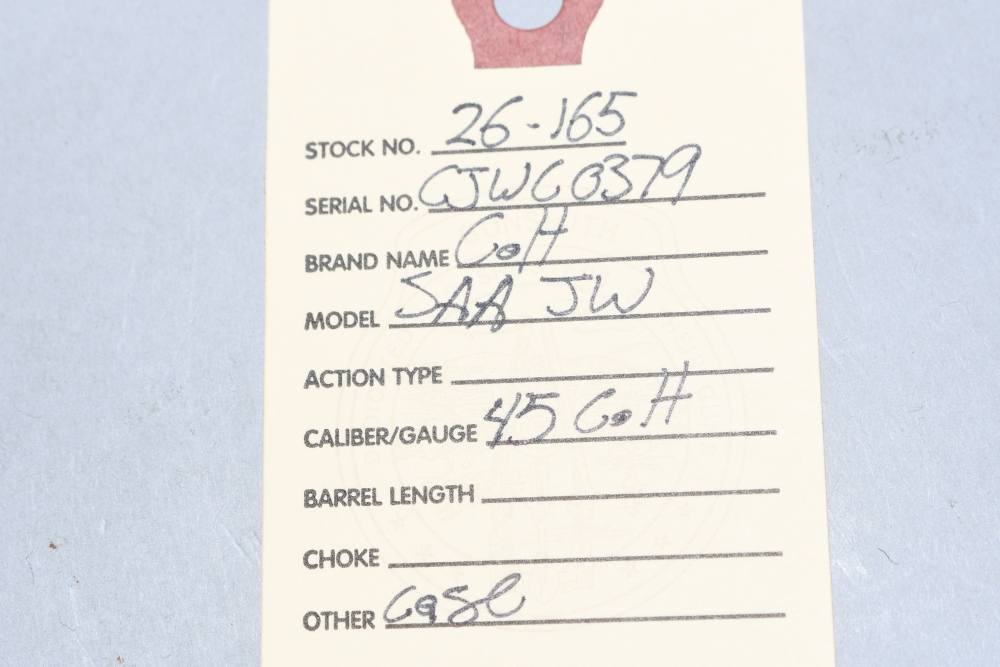 STOCK NO. 26-165
SERIAL NO. CJWC0379
BRAND NAME Colt
MODEL SAA JW
ACTION TYPE
CALIBER/GAUGE 45 Colt
BARREL LENGTH
CHOKE
OTHER Case